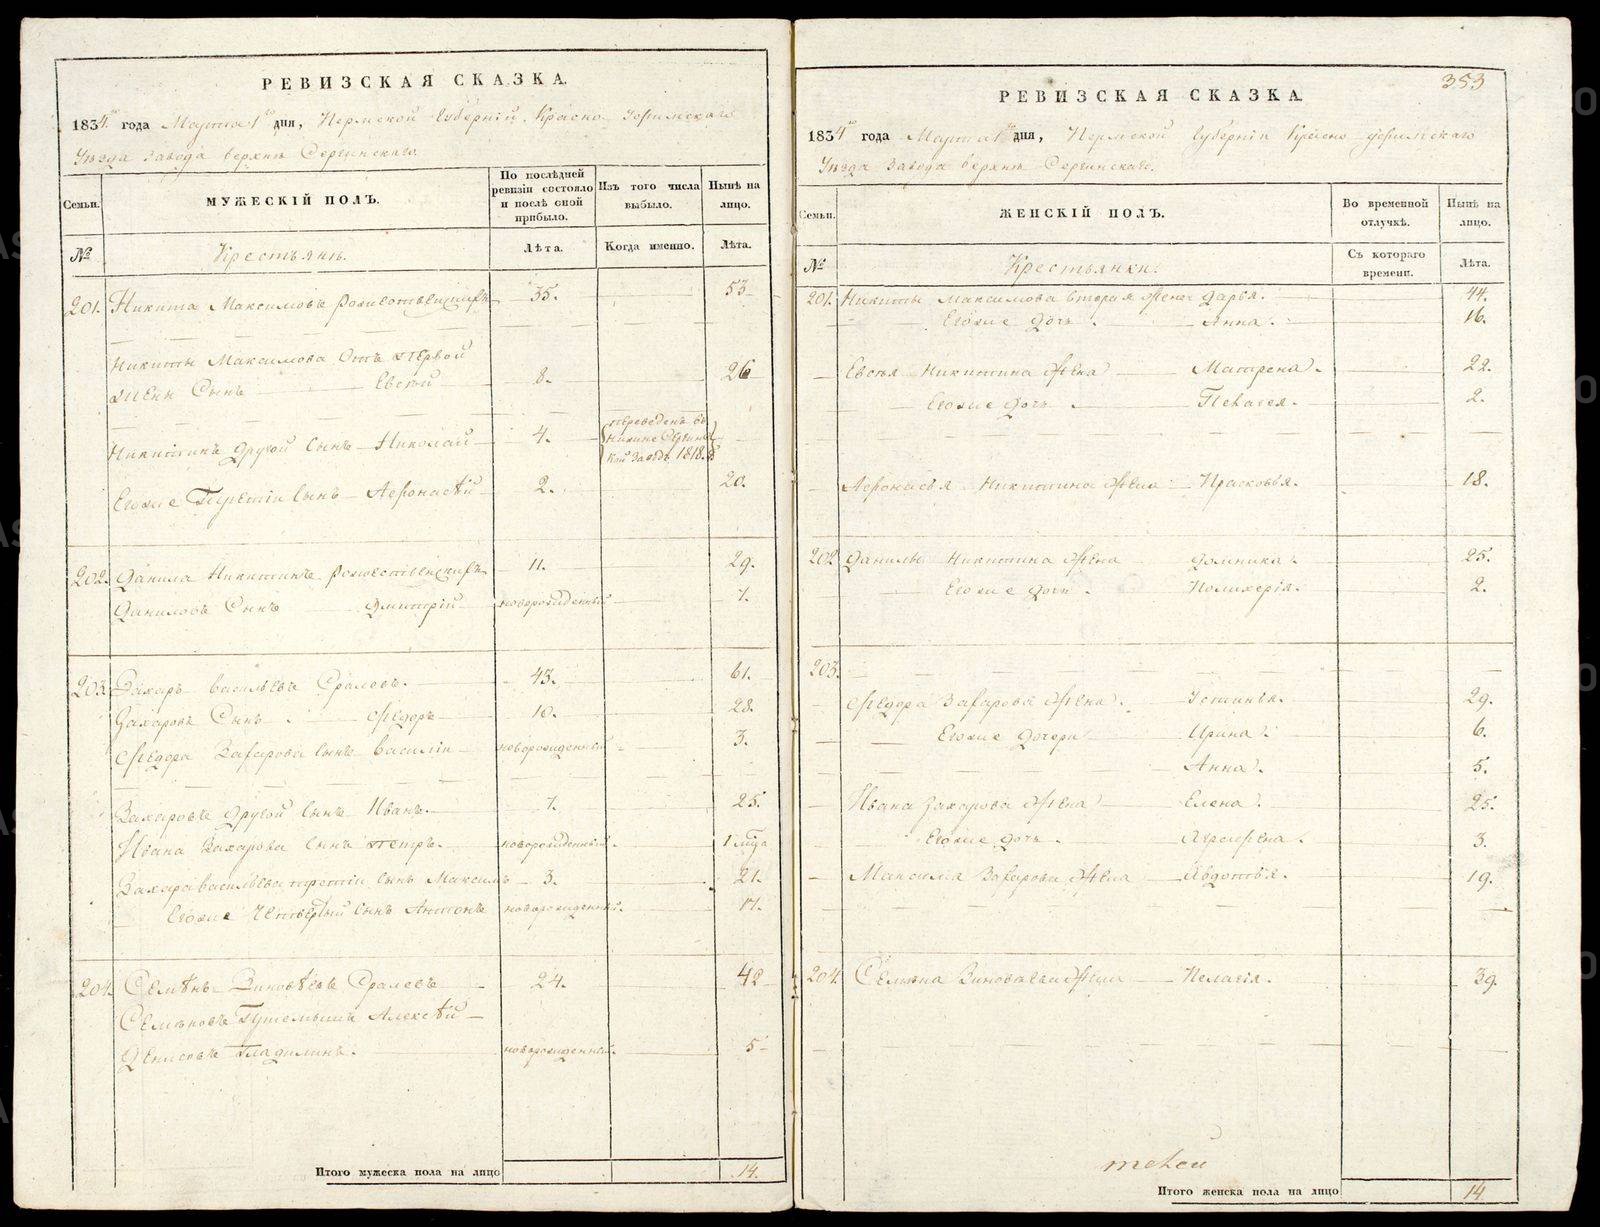 РЕВИЗСКАЯ СКАЗКА.
1834 года Марта 1 дня, Пермской Губернии, Красно Уфимскаго
Уезда Завода верхнъ Сергинскаго.
Семьи. МУЖЕСКІЙ ПОЛЪ. По послѣдней ревизіи состояло и послѣ оной прибыло. Изъ того числа выбыло. Нынѣ на лицо.
№ Крестьянъ. Лѣта. Когда именно. Лѣта.
201. Никита Максимовъ 35. 53
Никиты Максимова Отъ первой
жены Сынъ Евсѣй 8. 26
Никитинъ другой Сынъ Николай 4. переведенъ въ Нижне Сергинской Заводъ 1818.
Егоже Третіи Сынъ Афонасѣй 2. 20.
202. Данила Никитинъ 11. 29.
Даниловъ Сынъ Дмитрій новорожденный 7.
203. Захаръ Васильевъ Сралевъ. 43. 61.
Захаровъ Сынъ Ѳедоръ 10. 28.
Ѳедора Захарова Сынъ Василіи новорожденный 3.
Захаровъ другой Сынъ Иванъ. 7. 25.
Ивана Захарова Сынъ Петръ. новорожденный. 1
Захара Васильева третіи сынъ Максимъ 3. 21.
Егоже Четвертый Сынъ Антонъ новорожденный. 17.
204. Семѣнъ Зиновѣевъ Сралевъ 24. 42
Семеновъ Алексѣй
Денисовъ Гладилинъ. новорожденный. 5
Итого мужеска пола на лицо 14.
353
РЕВИЗСКАЯ СКАЗКА.
1834 года Марта 1 дня, Пермской Губерніи Красно уфимскаго
Уезда Завода верхнъ Сергинскаго.
Семьи. ЖЕНСКІЙ ПОЛЪ. Во временной отлучкѣ. Нынѣ на лицо.
№ Крестьянки. Съ котораго времени. Лѣта.
201. Никиты Максимова вторая жена Дарья. 44.
Егоже дочь Анна. 16.
Евсѣя Никитина жена Матрена. 22.
Егоже дочь Пелагея. 2.
Афонасья Никитина жена Прасковья. 18.
202 Данилы Никитина жена Домника. 25.
Егоже дочь Полихерія. 2.
203.
Ѳедора Захарова жена Устинья. 29.
Егоже дочери Ирина. 6.
Анна. 5.
Ивана Захарова жена Елена. 25.
Егоже дочь Аграфена. 3.
Максима Захарова жена Авдотья. 19.
204. Семѣна Зиновьева жена Пелагія. 39.
Итого женска пола на лицо 14